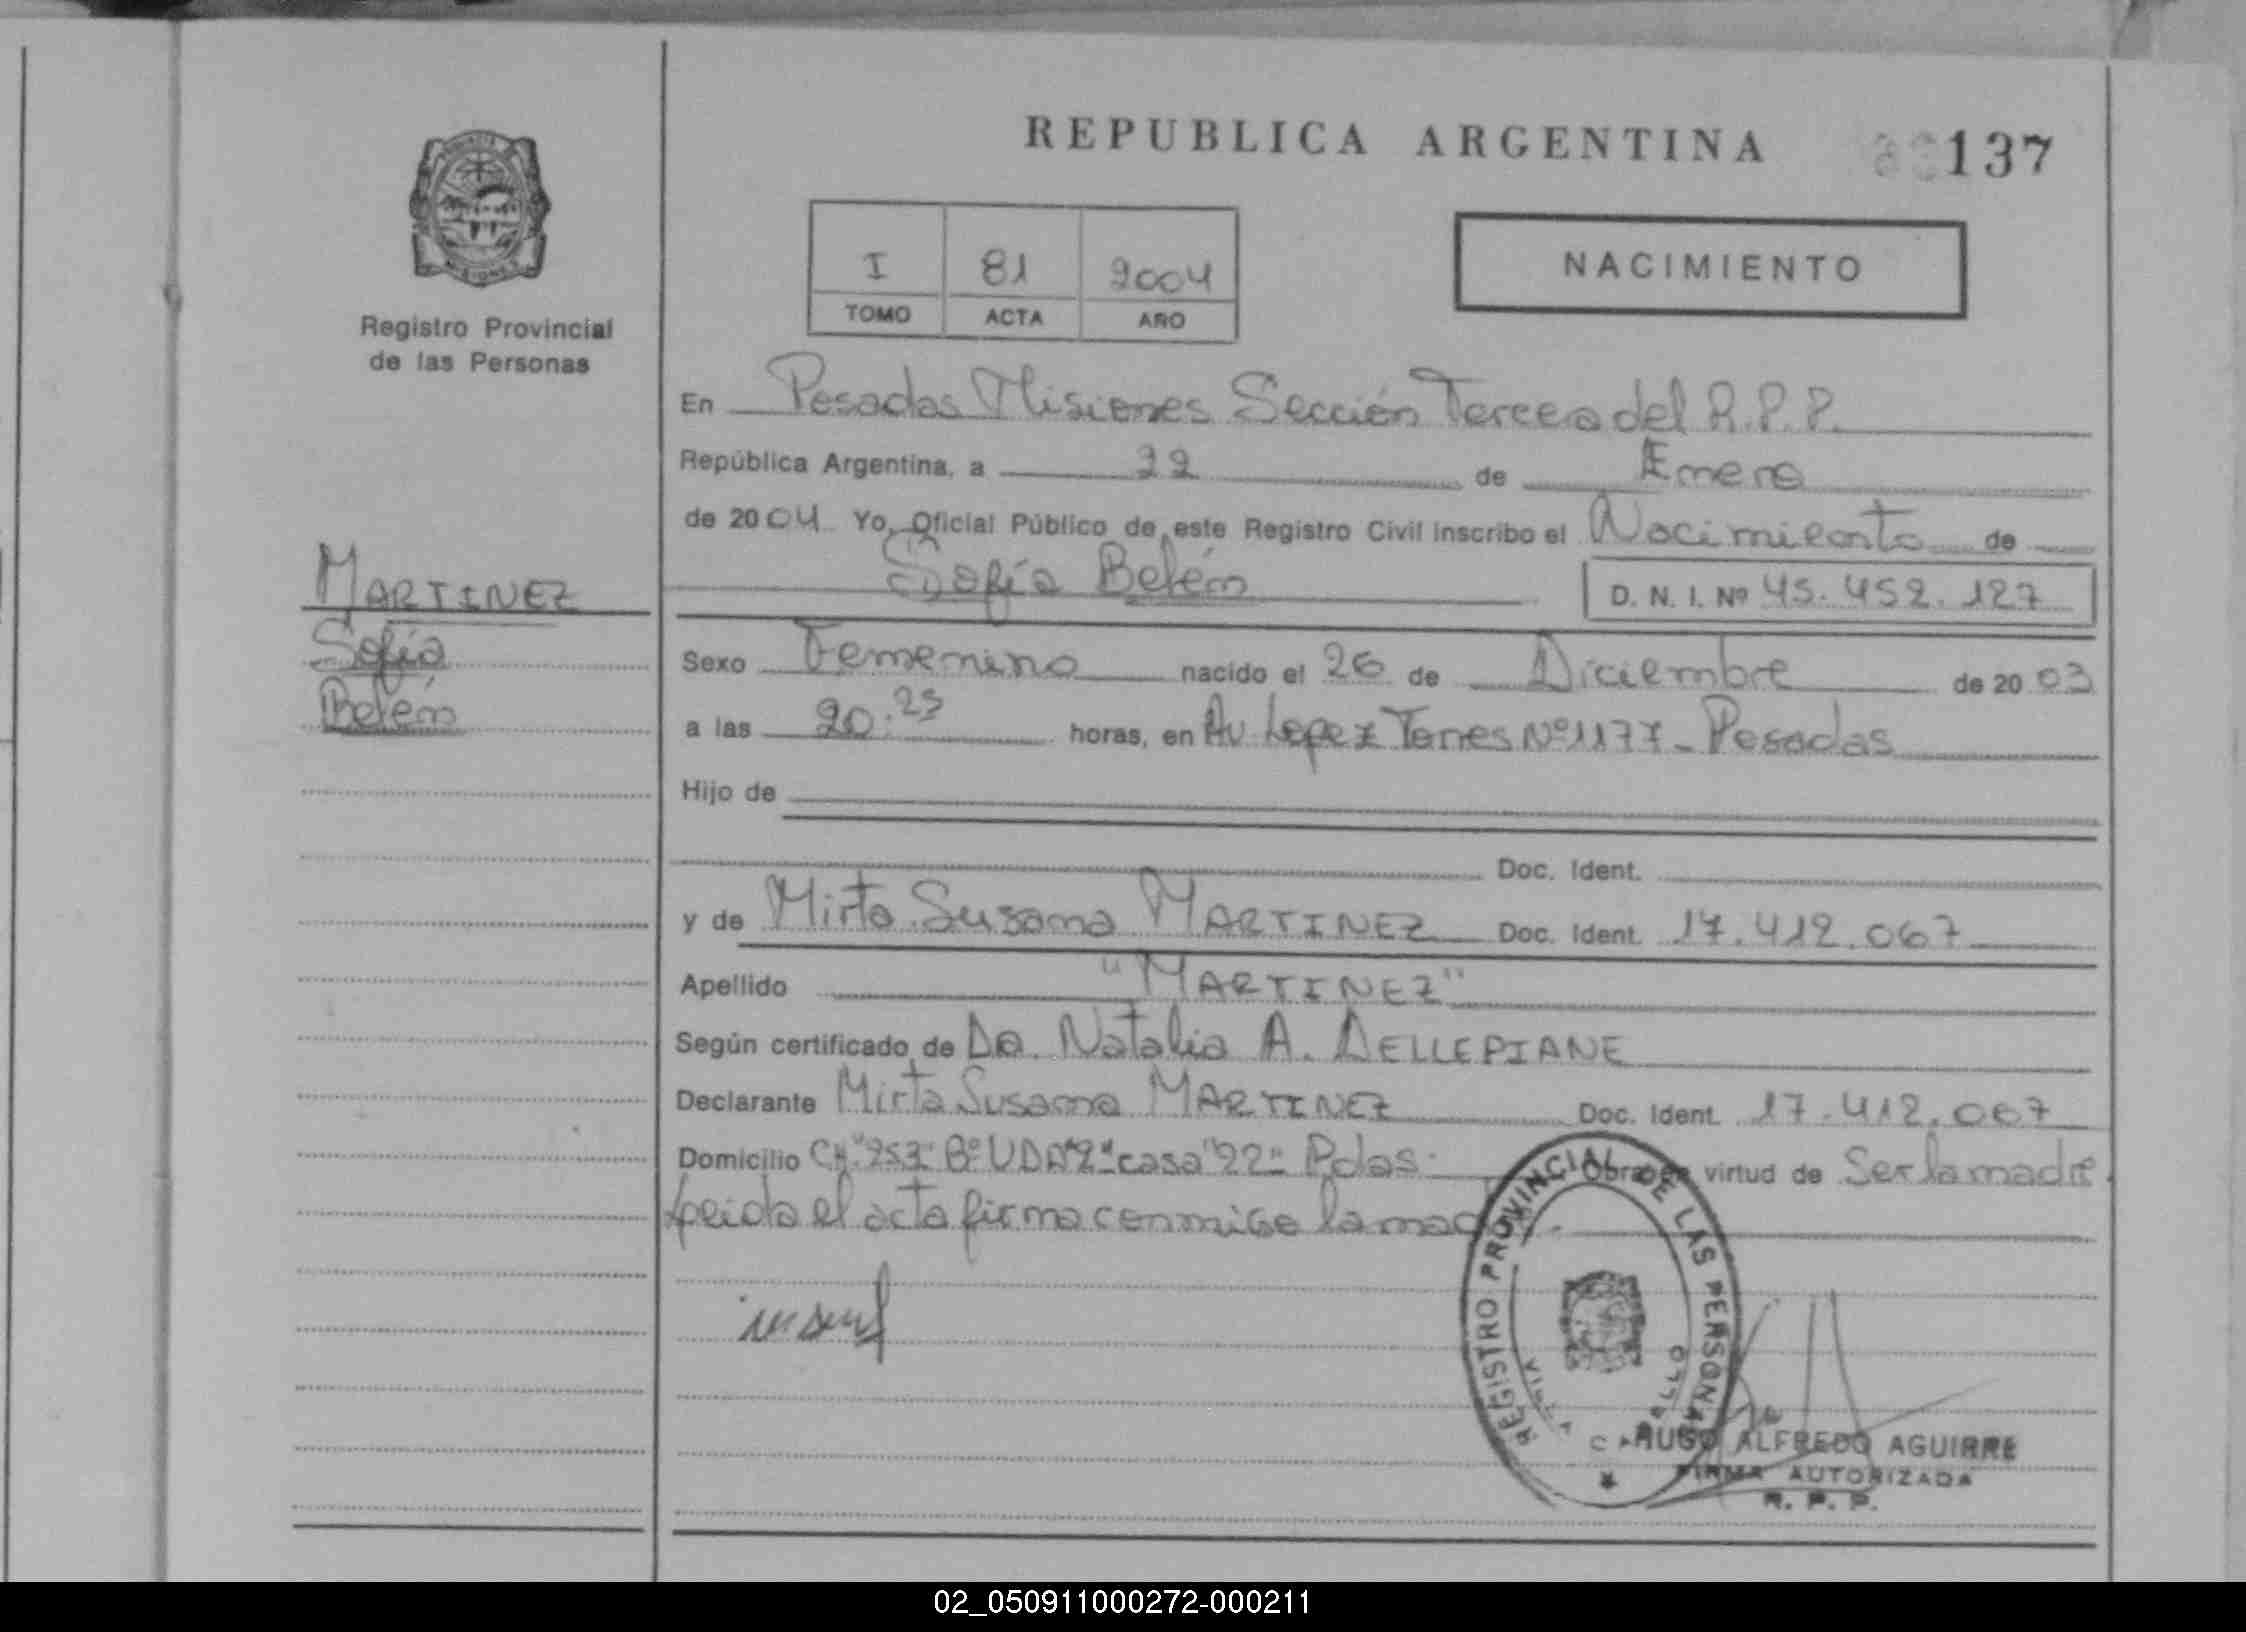 REPUBLICA ARGENTINA 137
I 81 2004
TOMO ACTA AÑO
NACIMIENTO
Registro Provincial
de las Personas
MARTINEZ
Sofía
Belén
En Posadas Misiones Sección Tercera del R.P.P.
República Argentina, a 22 de Enero
de 2004 Yo, Oficial Público de este Registro Civil inscribo el Nacimiento de
Sofía Belén D. N. I. Nº 45.452.127
Sexo Femenino nacido el 26 de Diciembre de 2003
a las 20:23 horas, en Av. Lopez Torres Nº 1177 - Posadas
Hijo de
Doc. Ident.
y de Mirta Susana MARTINEZ Doc. Ident. 17.412.067
Apellido "MARTINEZ"
Según certificado de Da. Natalia A. DELLEPIANE
Declarante Mirta Susana MARTINEZ Doc. Ident. 17.412.067
Domicilio CH."253" Bº UDA"2" casa "22" Pdas. Obra en virtud de Ser la madre
Leida el acta firma conmigo la
REGISTRO PROVINCIAL DE LAS PERSONAS
VILLA
HUGO ALFREDO AGUIRRE
FIRMA AUTORIZADA
R. P. P.
02_050911000272-000211